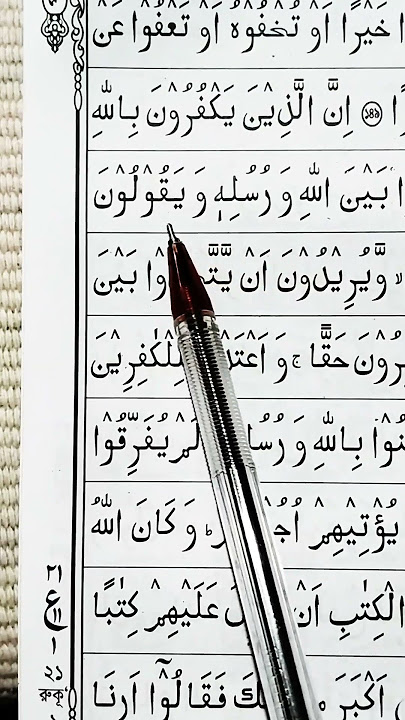 خَيْرًا اَوْ تُخْفُوْهُ اَوْ تَعْفُوْا عَنْ
اِنَّ الَّذِيْنَ يَكْفُرُوْنَ بِاللّٰهِ
بَيْنَ اللّٰهِ وَ رُسُلِهٖ وَ يَقُوْلُوْنَ
وَّيُرِيْدُوْنَ اَنْ بَيْنَ
حَقًّا ج وَ لِلْكٰفِرِيْنَ
بِاللّٰهِ وَ يُفَرِّقُوْا
يُؤْتِيْهِمْ ط وَ كَانَ اللّٰهُ
الْكِتٰبِ اَنْ عَلَيْهِمْ كِتٰبًا
اَكْبَرَ فَقَالُوْۤا اَرِنَا
٢١
ع
١١
١
২১
রুকূ